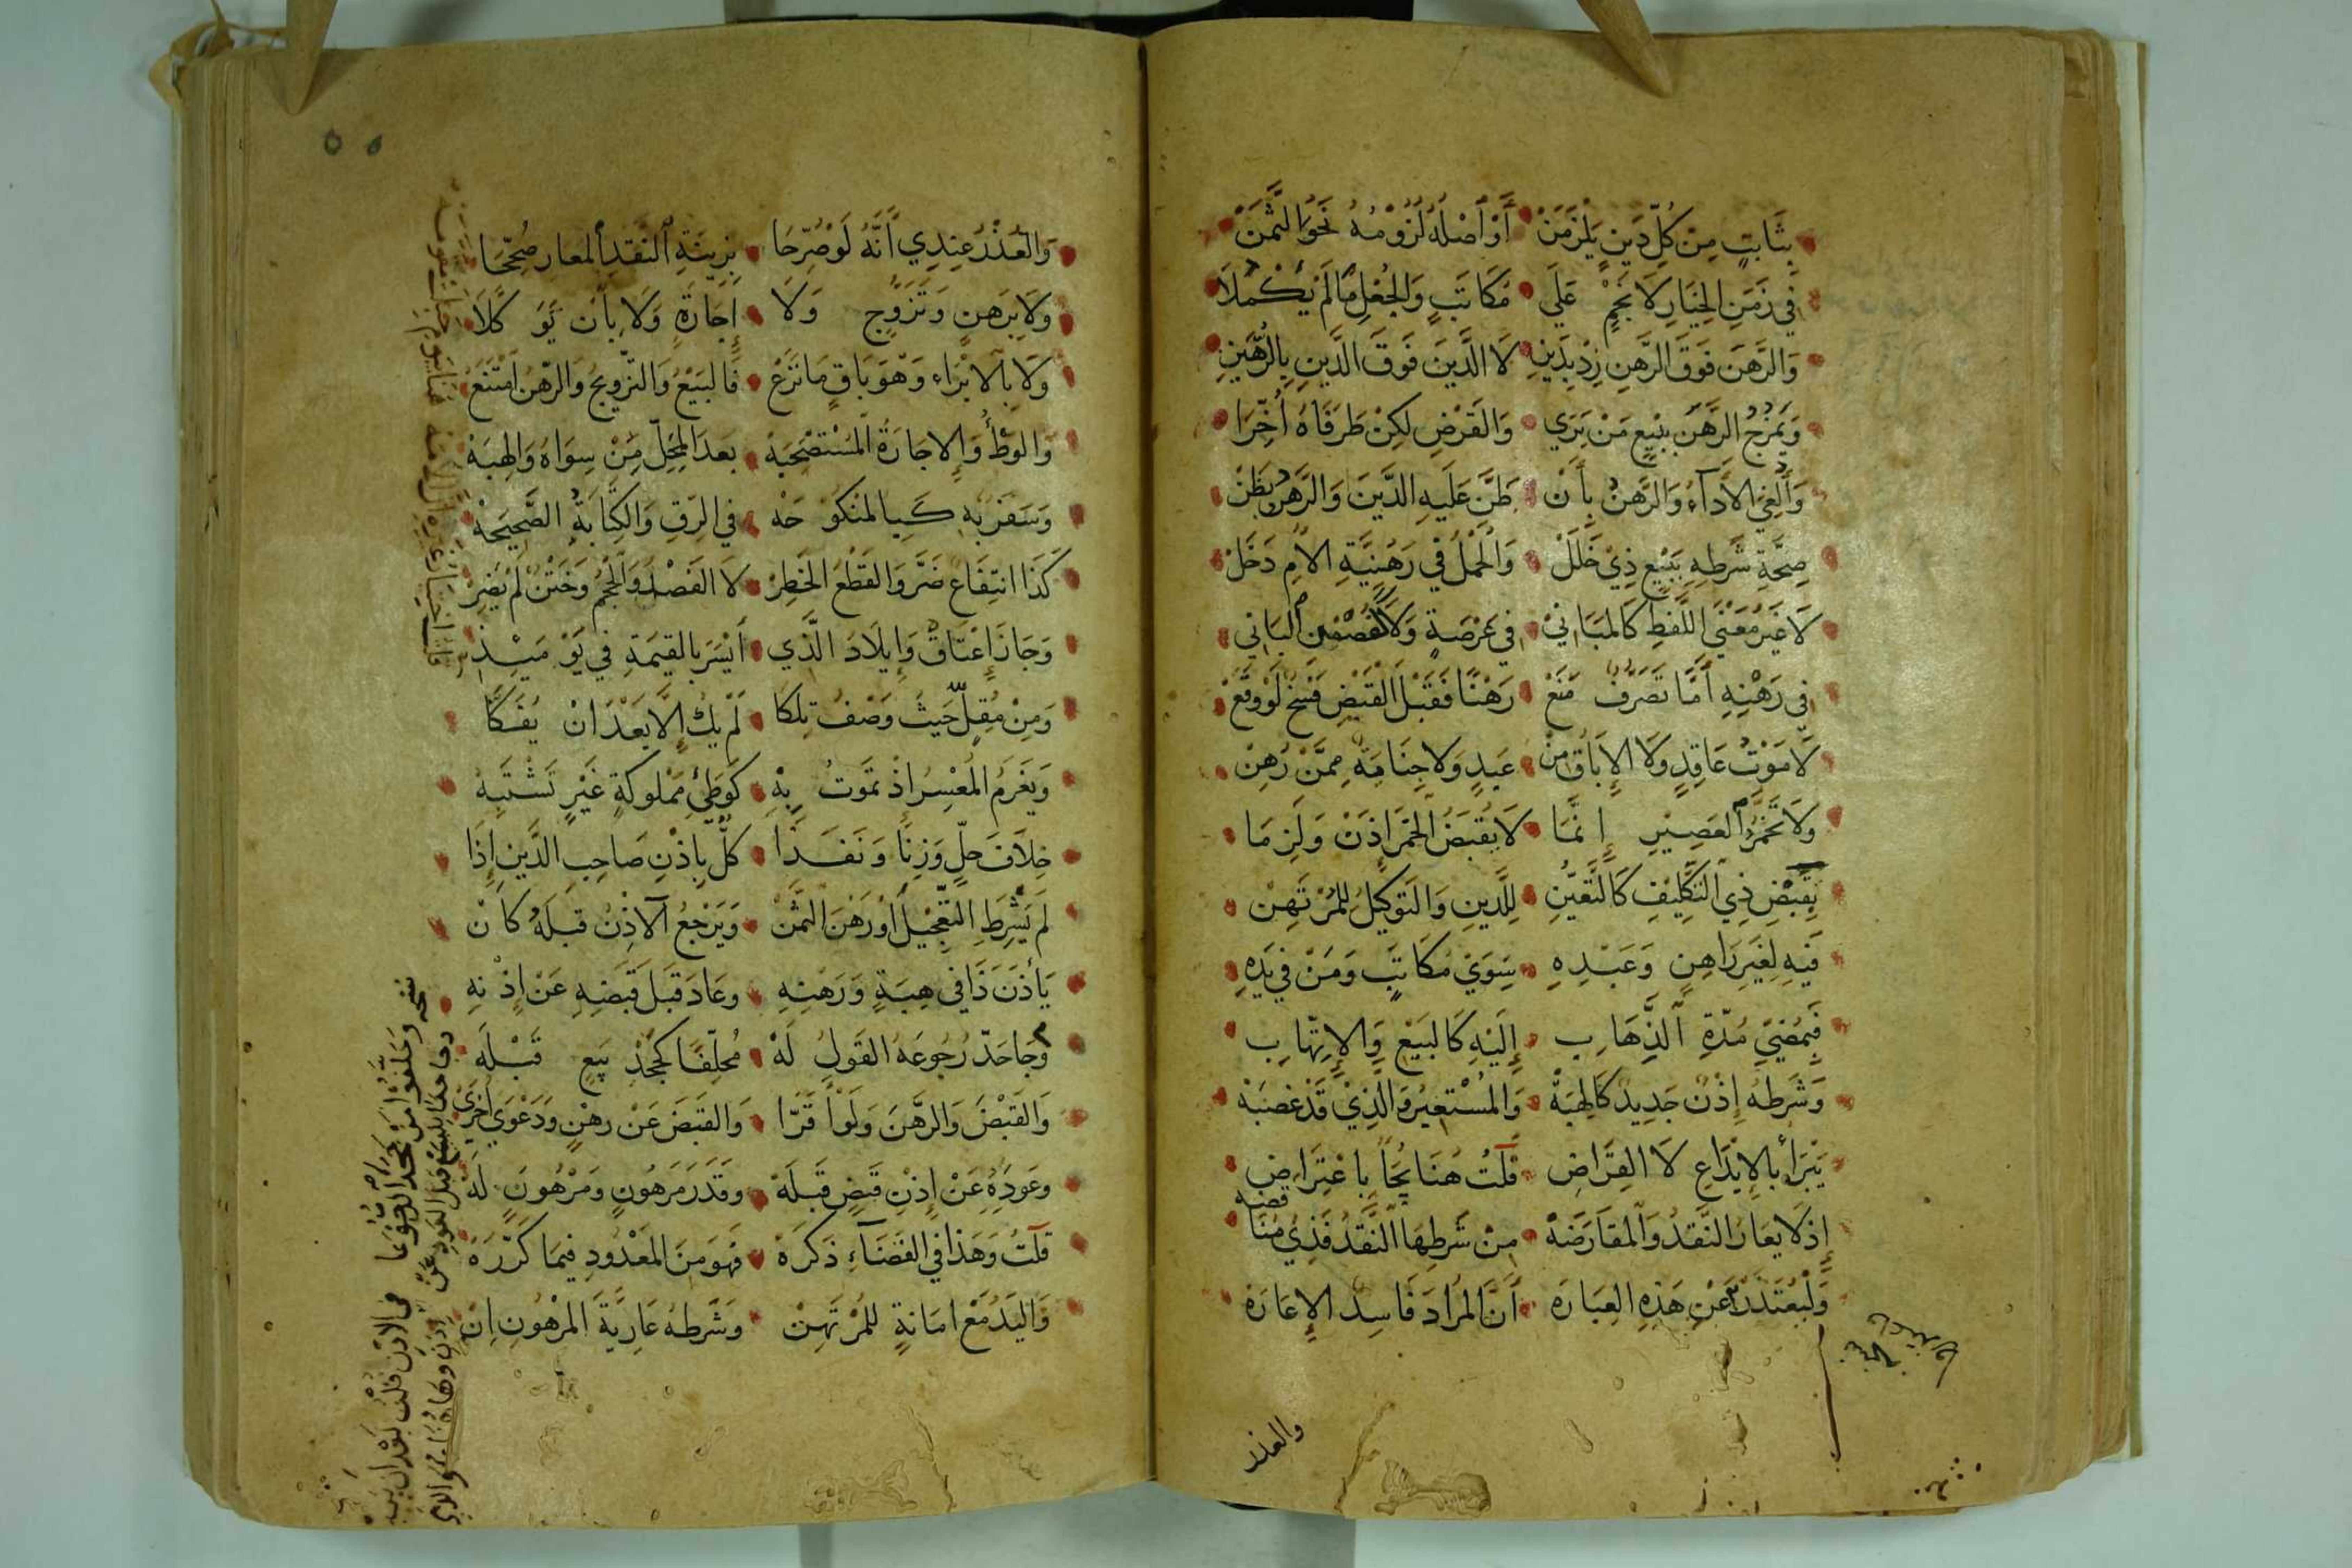 بِثَابتٍ مِنْ كُلِّ دَينٍ يَلْزَمَنْ أَوْ أَصْلُهُ لُزُومُهُ نَحْوُ الثَّمَنْ
فِي زَمَنِ الخِيَارِ لَا نَجْمٍ عَلَي مُكَاتَبٍ وَالجُعْلِ مَا لَمْ يَكْمُلَا
وَالرَّهنَ فَوْقَ الرَّهنِ زِدْ بِدَينِ لَا الدَّينَ فَوقَ الدَّينِ بِالرَّهْنَينِ
وَيُمْزَجُ الرَّهنُ بِبَيْعِ مَنْ يَرَي وَالقَرْضِ لَكِنْ طَرَفَاهُ أُخِّرَا
وَأُلْغِيَ الأَدَآءُ وَالرَّهنُ بِأَنْ ظَنَّ عَلَيهِ الدَّينَ وَالرَّهنُ بِظَنْ
صِحَّةِ شَرطِهِ بِبَيْعٍ ذِي خَلَلْ وَالحَمْلُ فِي رَهْنِيَّةِ الأُمِ دَخَلْ
لَا غَيرُ مَعْنَي اللَّفظِ كَالمَبَانِيْ فِي عَرْصَةٍ وَلَا كَغُصْنِ البَانِي
فِي رَهْنِهِ أَمَّا تَصَرُّفٌ مَنَعْ رَهْنًا فَقَبْلَ القَبْضِ فَسْخٌ لَوْ وَقَعْ
لَا مَوْتُ عَاقِدٍ وَلَا الإِبَاقُ مِنْ عَبدٍ وَلَا جِنَايَةٌ مِمَّنْ رُهِنْ
وَلَا تَخَمُّرُ العَصِيرِ إِنَّمَا لَا يُقبَضُ الخَمْرُ إِذَنْ وَلَزِمَا
بِقَبْضِ ذِي التَّكلِيفِ كَالتَّعَيُّنِ لِلدَّينِ وَالتَوكِيلُ لِلمُرْتَهِنْ
فِيهِ لِغَيرِ رَاهِنٍ وَعَبْدِهِ سِوَيْ مُكَاتَبٍ وَمَنْ فِي يَدِهِ
فَبِمُضِيِّ مُدَّةِ الذِّهَابِ إِلَيهِ كَالبَيْعِ وَالإِتِّهَابِ
وَشَرطُهُ إِذْنٌ جَدِيدٌ كَالهِبَهْ وَالمُسْتَعِيرُ وَالَّذِيْ قَدْ غَصَبَهْ
يَبْرَأُ بِالإِيْدَاعِ لَا القِرَاضِ قُلْتُ هُنَا يُجَآءُ بِاعْتِرَاضِ
إِذْ لَا يُعَارُ النَّقدُ وَالمُقَارَضَهْ مِنْ شَرطِهَا النَّقدُ فَذِي مُنَاقَضَه
وَلْيُعْتَذَرْ عَنْ هَذِهِ العِبَارَه أَنَّ المُرَادَ فَاسِدُ الإِعَارَهْ
والعذر
وَالعُذْرُ عِنْدِي أَنَّهُ لَوْ صُرِّحَا بِزِينَةِ النَّقدِ المُعَارِ صُحِّحَا
وَلَا بِرَهنٍ وَتَزَوُّجٍ وَلَا إِجَارَةٍ وَلَا بِأَنْ تَوَكَّلَا
وَلَا بِالابْرَاءِ وَهْوَ بَاقٍ مَا نَزَعْ فَالبَيْعُ وَالتَّزوِيجُ وَالرَّهْنُ امْتَنَعْ
وَالوَطْءُ وَالإِجَارَةُ المُسْتَصْحَبَهْ بَعدَ المَحِلِّ مِنْ سِوَاهُ وَالهِبَهْ
وَسَفَرٌ بِهِ كَبِالمَنكُوحَهْ فِي الرِّقِ وَالكِتَابَةُ الصَّحِيحَهْ
كَذَا انتِفَاعٌ ضَرَّ وَالقَطْعُ الخَطِرْ لَا الفَصْدُ وَالحَجْمُ وَخَتْنٌ لَمْ يُضِرْ
وَجَازَ إِعْتَاقٌ وَإِيلَادُ الَّذِي أَيْسَرَ بِالقِيمَةِ فِي يَوْمَيْئِذِ
وَمِنْ مُقِلٍّ حَيثُ وَصْفُ تِلكَا لَمْ يَكُ إِلَّا بَعْدَ أَنْ يُفَكَّا
وَيَغْرَمُ المُعْسِرُ إِذْ تَمُوتُ بِهْ كَوَطْئِ مَمْلُوكَةِ غَيْرٍ تَشْتَبِهْ
خِلَافَ حِلٍّ وَزِنًا وَنَفَذَا كُلٌّ بِإِذْنِ صَاحِبِ الدَّينِ إِذَا
لَمْ يَشْرِطِ التَّعْجِيلَ أَوْ رَهنَ الثَّمَنْ وَيَرْجِعُ الآذِنُ قَبلَهُ كَأَنْ
يَأْذَنَ ذَا فِي هِبَةٍ وَرَهْنِهِ وَعَادَ قَبلَ قَبْضِهِ عَنْ إِذْنِهِ
وَجَاحَدٌ رُجُوعَهُ القَولُ لَهْ مُحَلَّفًا كَجَحْدِ بَيعٍ قَبْلَهْ
وَالقَبْضَ وَالرَّهنَ وَلَوْ أَقَرَّا وَالقَبضَ عَنْ رهْنٍ وَدَعْوَي أُخْرَيْ
وَعَودِهِ عَنْ إِذْنِ قَبضٍ قَبلَهْ وَقَدْرَ مَرهُونٍ وَمَرْهُونٍ لَهْ
قُلْتُ وَهَذَا فِي القَضَآءِ ذَكَرَهْ فَهوَ مِنَ المَعْدُودِ فِيمَا كَرَّرَهْ
وَاليَدُ مَعْ أمَانَةٍ لِلمُرْتَهِنْ وَشَرطُهُ عَارِيَّةَ المَرْهُونِ اِنْ